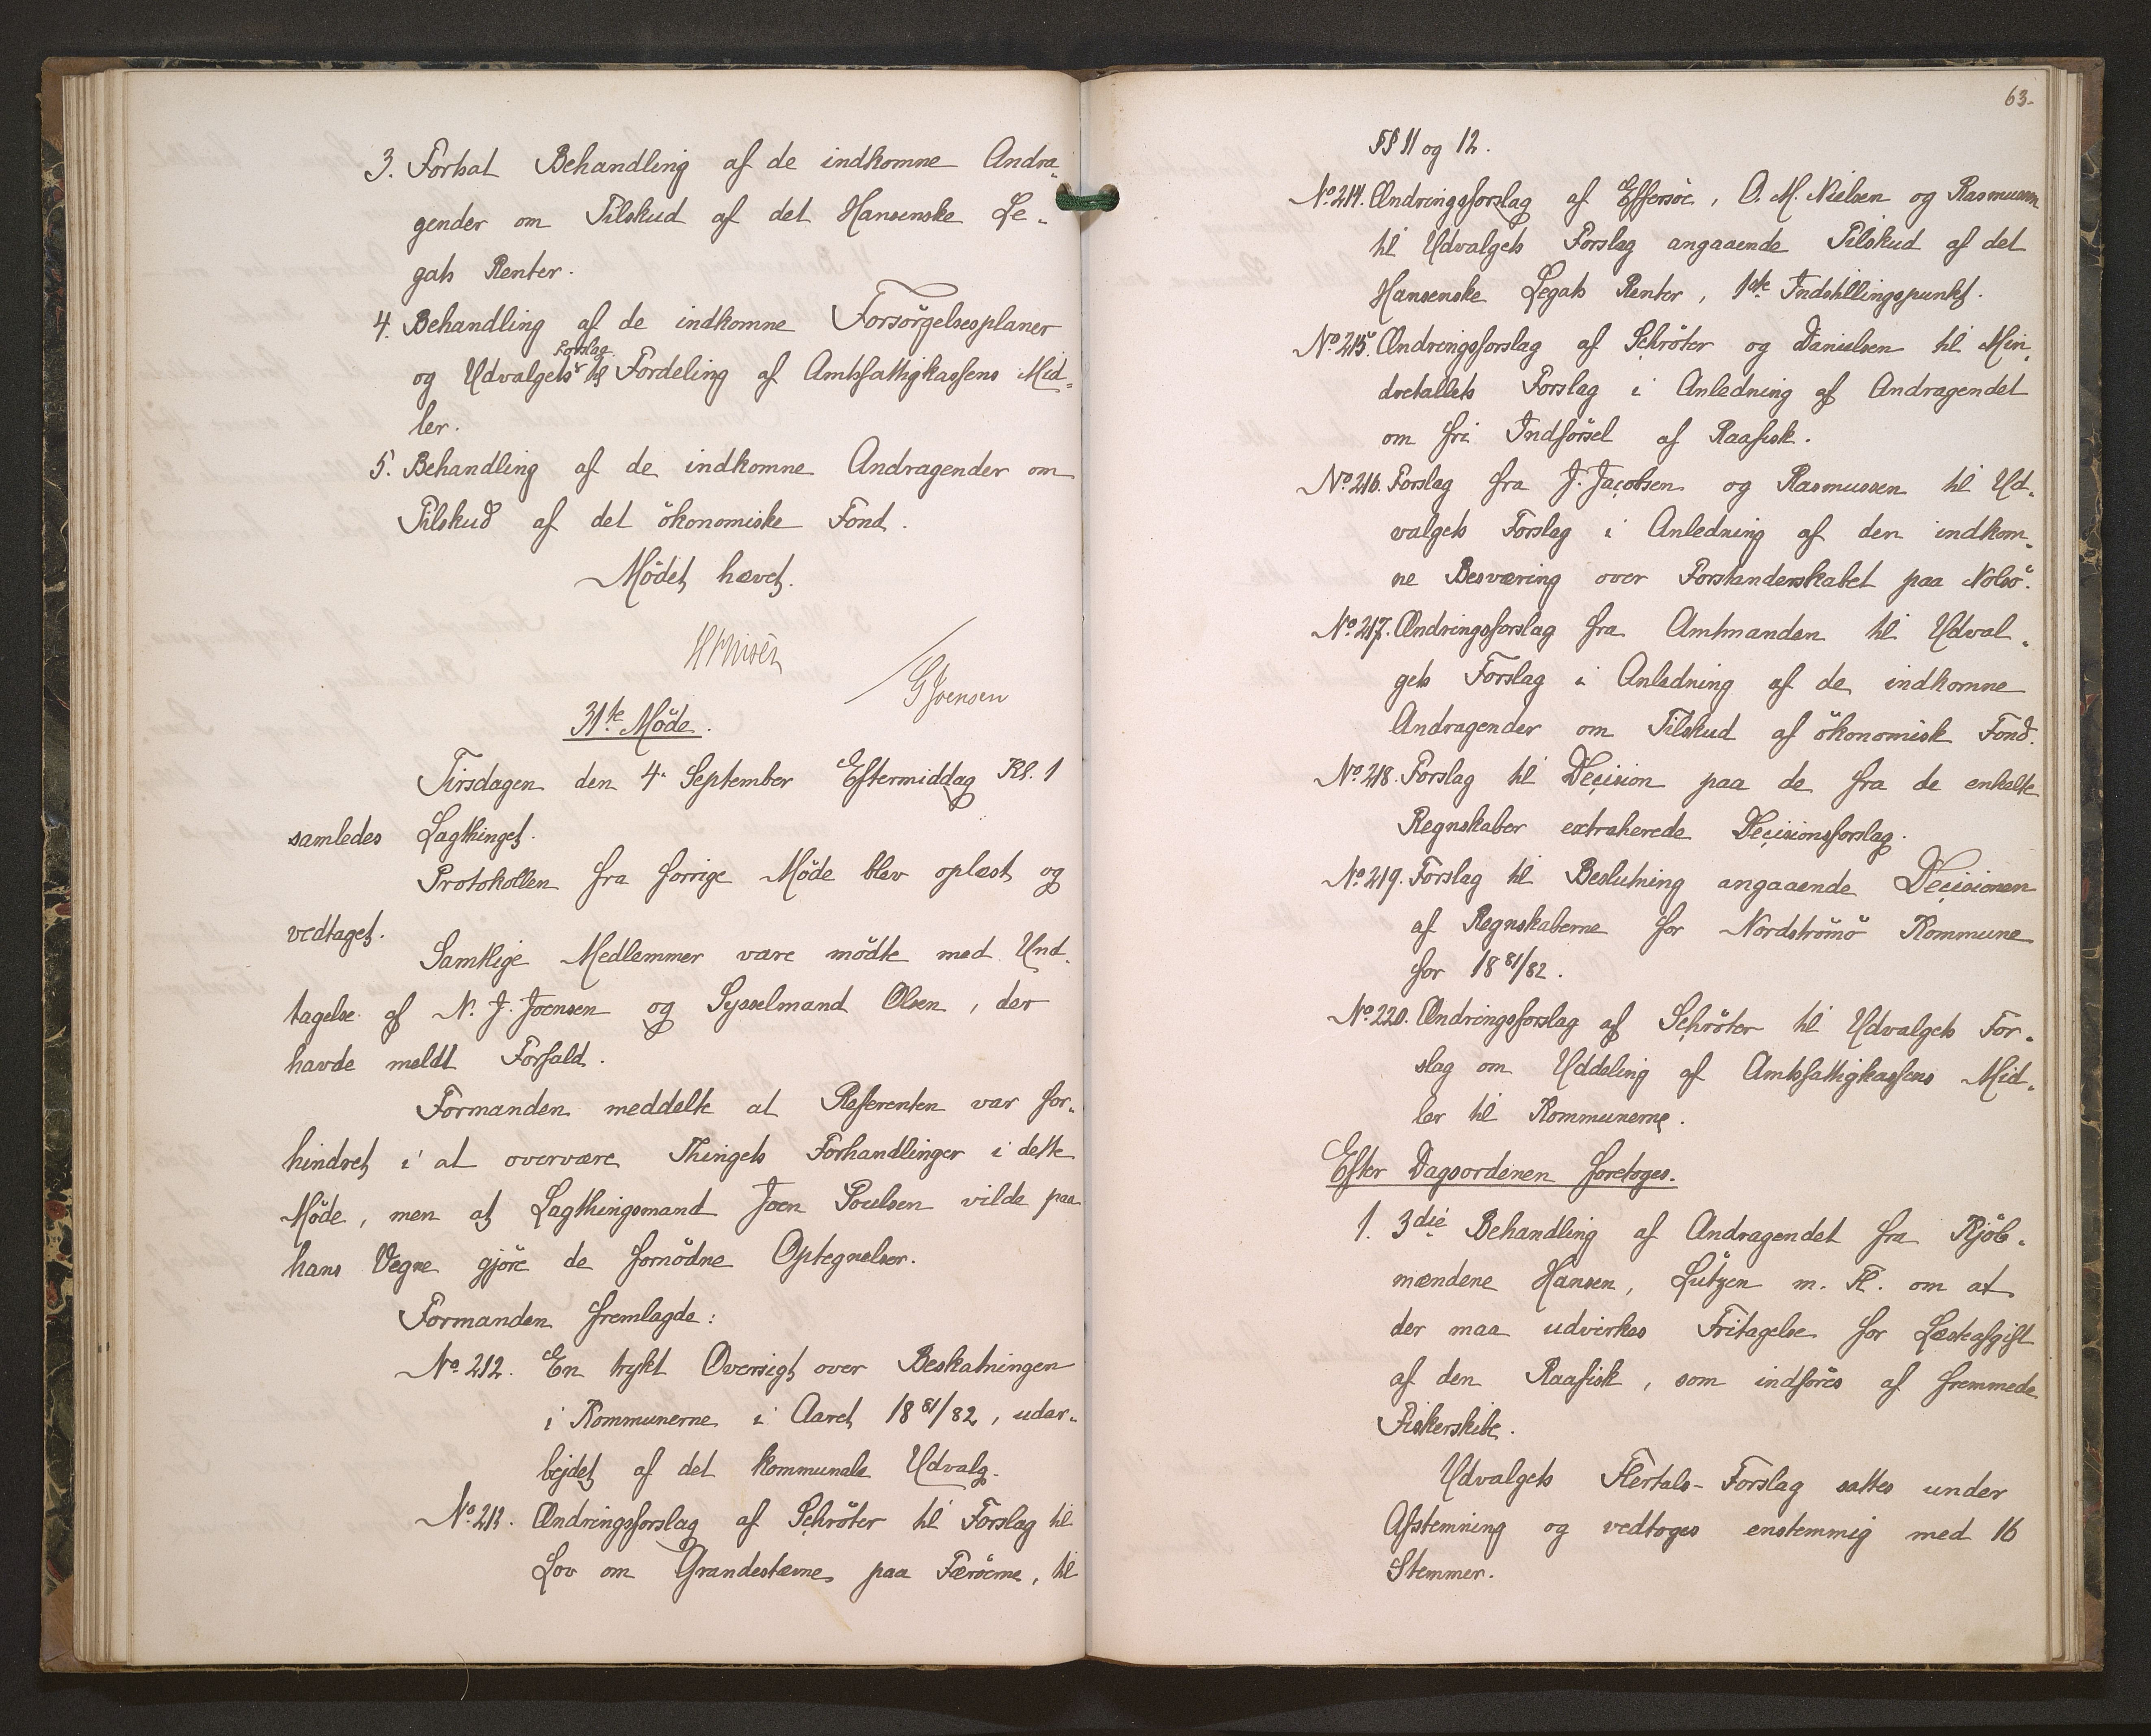 3. Fortsat Behandling af de indkomne Andra-
gender om Tilskud af det Hansenske Le-
gats Renter.
4. Behandling af de indkomne Forsörgelsesplaner
og Udvalgets Forslag til Fordeling af Amtsfattigkassens Mid-
ler.
5. Behandling af de indkomne Andragender om
Tilskud af det ökonomiske Fond.
Mödet hævet.
GJoensen
31te Möde.
Tirsdagen den 4. September Eftermiddag Kl. 1
samledes Lagthinget.
Protokollen fra forrige Möde blev oplæst og
vedtaget.
Samtlige Medlemmer vare mödte med Und-
tagelse af N. J. Joensen og Sysselmand Olsen, der
havde meldt Forfald.
Formanden meddelte at Referenten var for-
hindret i at overvære Thingets Forhandlinger i dette
Möde, men at Lagthingsmand Joen Poulsen vilde paa
hans Vegne gjöre de fornödne Optegnelser.
Formanden fremlagde:
No. 212. En trykt Oversigt over Beskatningen
i Kommunerne i Aaret 1881/82, udar-
bejdet af det kommunale Udvalg.
No. 213. Ændringsforslag af Schröter til Forslag til
Lov om Grandestævne paa Færöerne, til
63-
§§ 11 og 12.
No. 214. Ændringsforslag af Effersöe, O. M. Nielsen og Rasmussen
til Udvalgets Forslag angaaende Tilskud af det
Hansenske Legats Renter, 1ste Indstillingspunkt.
No. 215. Ændringsforslag af Schröter og Danielsen til Min-
dretallets Forslag i Anledning af Andragendet
om fri Indförsel af Raafisk.
No. 216. Forslag fra J. Jacobsen og Rasmussen til Ud-
valgets Forslag i Anledning af den indkom-
ne Besværing over Forstanderskabet paa Nolsö.
No. 217. Ændringsforslag fra Amtmanden til Udval-
gets Forslag i Anledning af de indkomne
Andragender om Tilskud af ökonomisk Fond.
No. 218. Forslag til Decision paa de fra de enkelte
Regnskaber extraherede Decisionsforslag.
No. 219. Forslag til Beslutning angaaende Decisionen
af Regnskaberne for Nordströmö Kommune
for 1881/82.
No. 220. Ændringsforslag af Schröter til Udvalgets For-
slag om Uddeling af Amtsfattigkassens Mid-
ler til Kommunerne.
Efter Dagsordenen foretoges.
1. 3die Behandling af Andragendet fra Kjöb-
mændene Hansen, Lützen m. Fl. om at
der maa udvirkes Fritagelse for Læsteafgift
af den Raafisk, som indföres af fremmede
Fiskerskibe.
Udvalgets Flertals-Forslag sattes under
Afstemning og vedtoges enstemmig med 16
Stemmer.